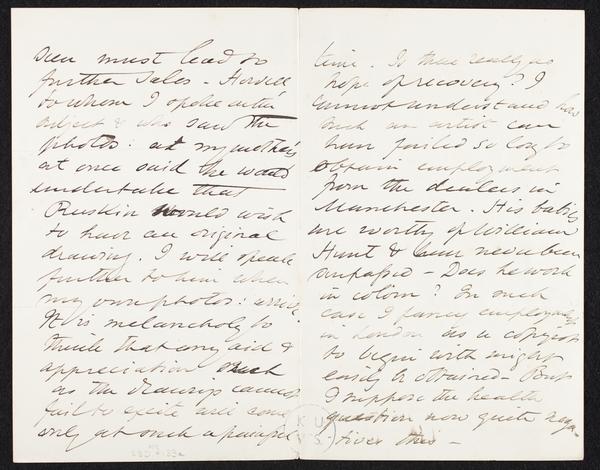 seen must lead to
further sales – Howell
to whom I spoke on the
subject & who saw the
photos: at my mother's
at once said he would
undertake that
Ruskin would wish
to have an original
drawing. I will speak
further to him when
my own photos: arrive
It is melancholy to
think that any aid &
appreciation such
as the drawings cannot
fail to excite will come
only at such a painful
time. Is there really no
hope of recovery? I
cannot understand how
such an artist can
have failed so long to
obtain employment
from the dealers in
Manchester. His babies
are worthy of William
Hunt & have never been
surpassed – Does he work
in colour? In such
case I fancy employment
in London as a copyist
to begin with might
easily be obtained – But
I suppose the health
question now quite nega-
tives this –
KU